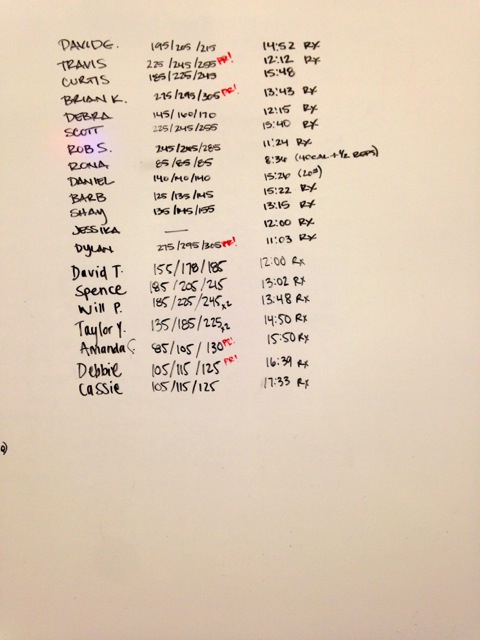 DAVIDE. 195/205/215 14:52 RX
TRAVIS 225/245/255 PR! 12:12 RX
CURTIS 185/225/245 15:48
BRIAN K. 275/295/305 PR! 13:43 RX
DEBRA 145/160/170 12:15 RX
SCOTT 225/245/255 13:40 RX
ROB S. 245/265/285 11:24 RX
RONA 85/85/85 8:36 (40CAL + 1/2 REPS)
DANIEL 140/140/140 15:26 (20#)
BARB 125/135/145 15:22 RX
SHAY 135/145/155 13:15 RX
JESSIKA — 12:00 RX
DYLAN 275/295/305 PR! 11:03 RX
David T. 155/178/185 12:00 Rx
Spence 185/205/215 13:02 Rx
Will P. 185/225/245x2 13:48 Rx
Taylor Y. 135/185/225x2 14:50 Rx
Amanda 85/105/130 PR! 15:50 Rx
Debbie 105/115/125 PR! 16:39 Rx
Cassie 105/115/125 17:33 Rx